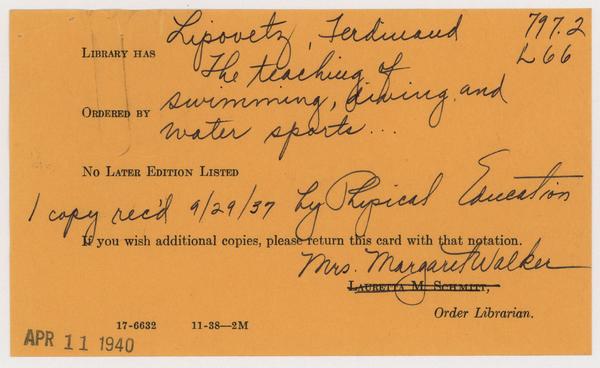 Lipovetz, Ferdinand 797.2
LIBRARY HAS The teaching of L66
ORDERED BY swimming, diving and
water sports...
NO LATER EDITION LISTED
1 copy rec'd 9/29/37 by Physical Education
If you wish additional copies, please return this card with that notation.
Mrs. Margaret Walker
LAURETTA M. SCHMITT,
Order Librarian.
17-6632 11-38—2M
APR 11 1940